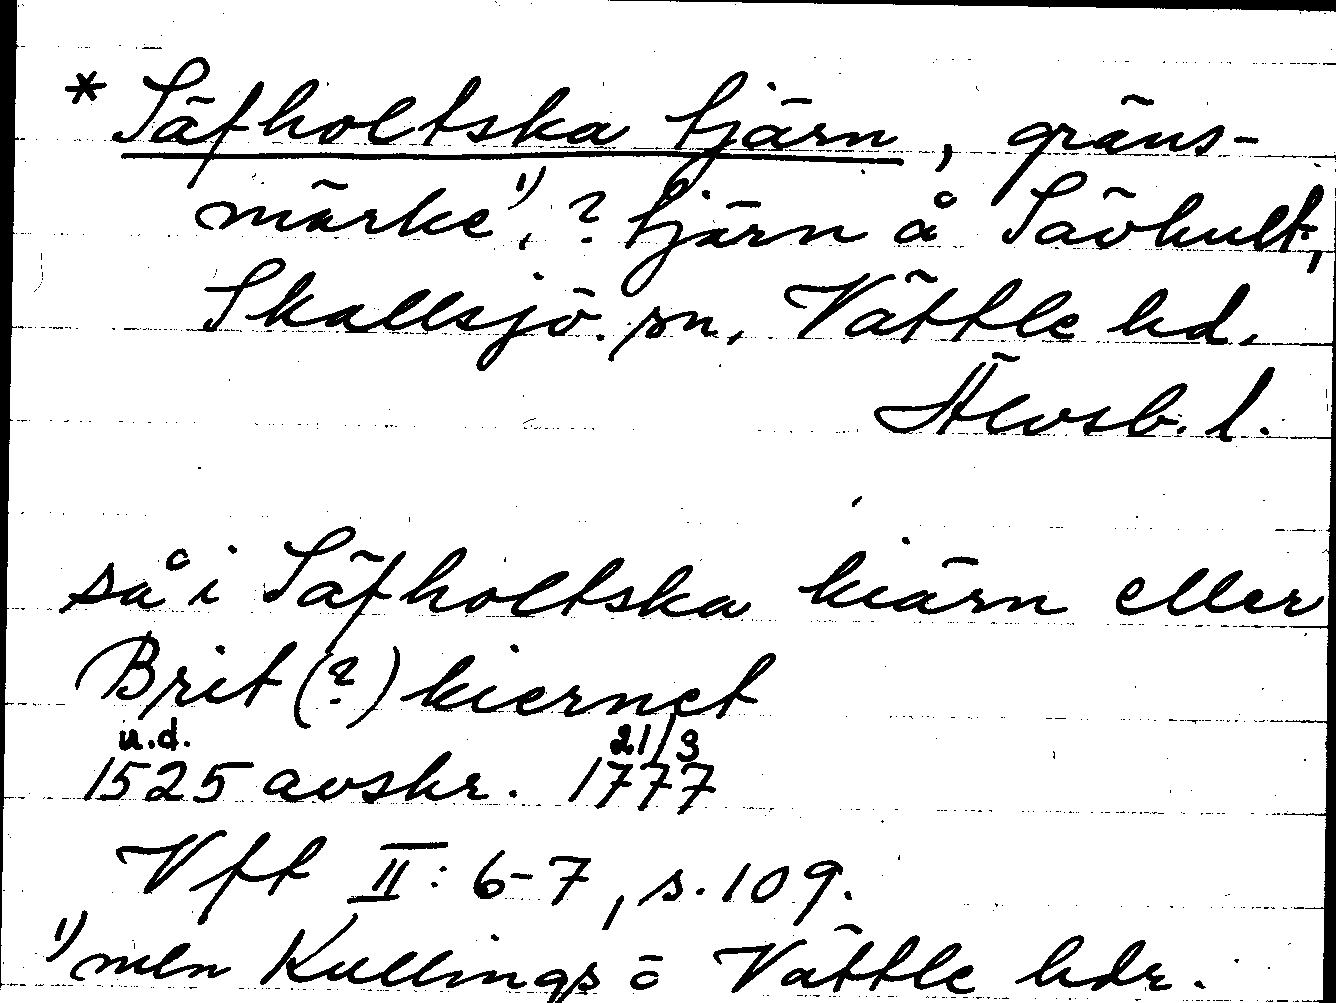 * Säfholtska tjärn, gräns-
märke¹⁾, ? tjärn å Sävhult,
Skallsjö sn, Vättle hd,
Älvsb. l.
så i Säfholtska kiärn eller
Brit (?) kiernet
u.d. 21/3
1525 avskr. 1777
Vft II: 6-7, s. 109.
¹⁾ mln Kullings o Vättle hdr.